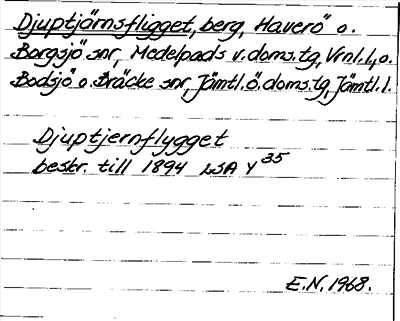 Djuptjärnsfligget, berg, Haverö o.
Borgsjö snr, Medelpads v.doms.tg, Vrnl.l., o.
Bodsjö o. Bräcke snr, Jämtl.ö.doms.tg, Jämtl.l.
Djuptjernflygget
beskr. till 1894 LSA Y 35
E.N. 1968.